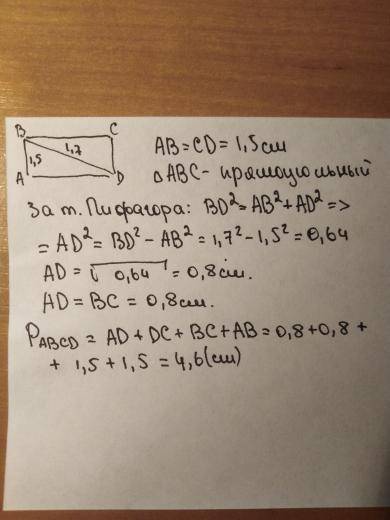 B C
1,7
1,5
A D
AB=CD=1,5см
△ABC- прямоуольный
За т. Пифагора: BD²=AB²+AD²=>
= AD²= BD²-AB²=1,7²-1,5²=0,64
AD= √0,64 = 0,8см.
AD=BC=0,8см.
P_ABCD = AD+DC+BC+AB=0,8+0,8+
+ 1,5+1,5=4,6(см)